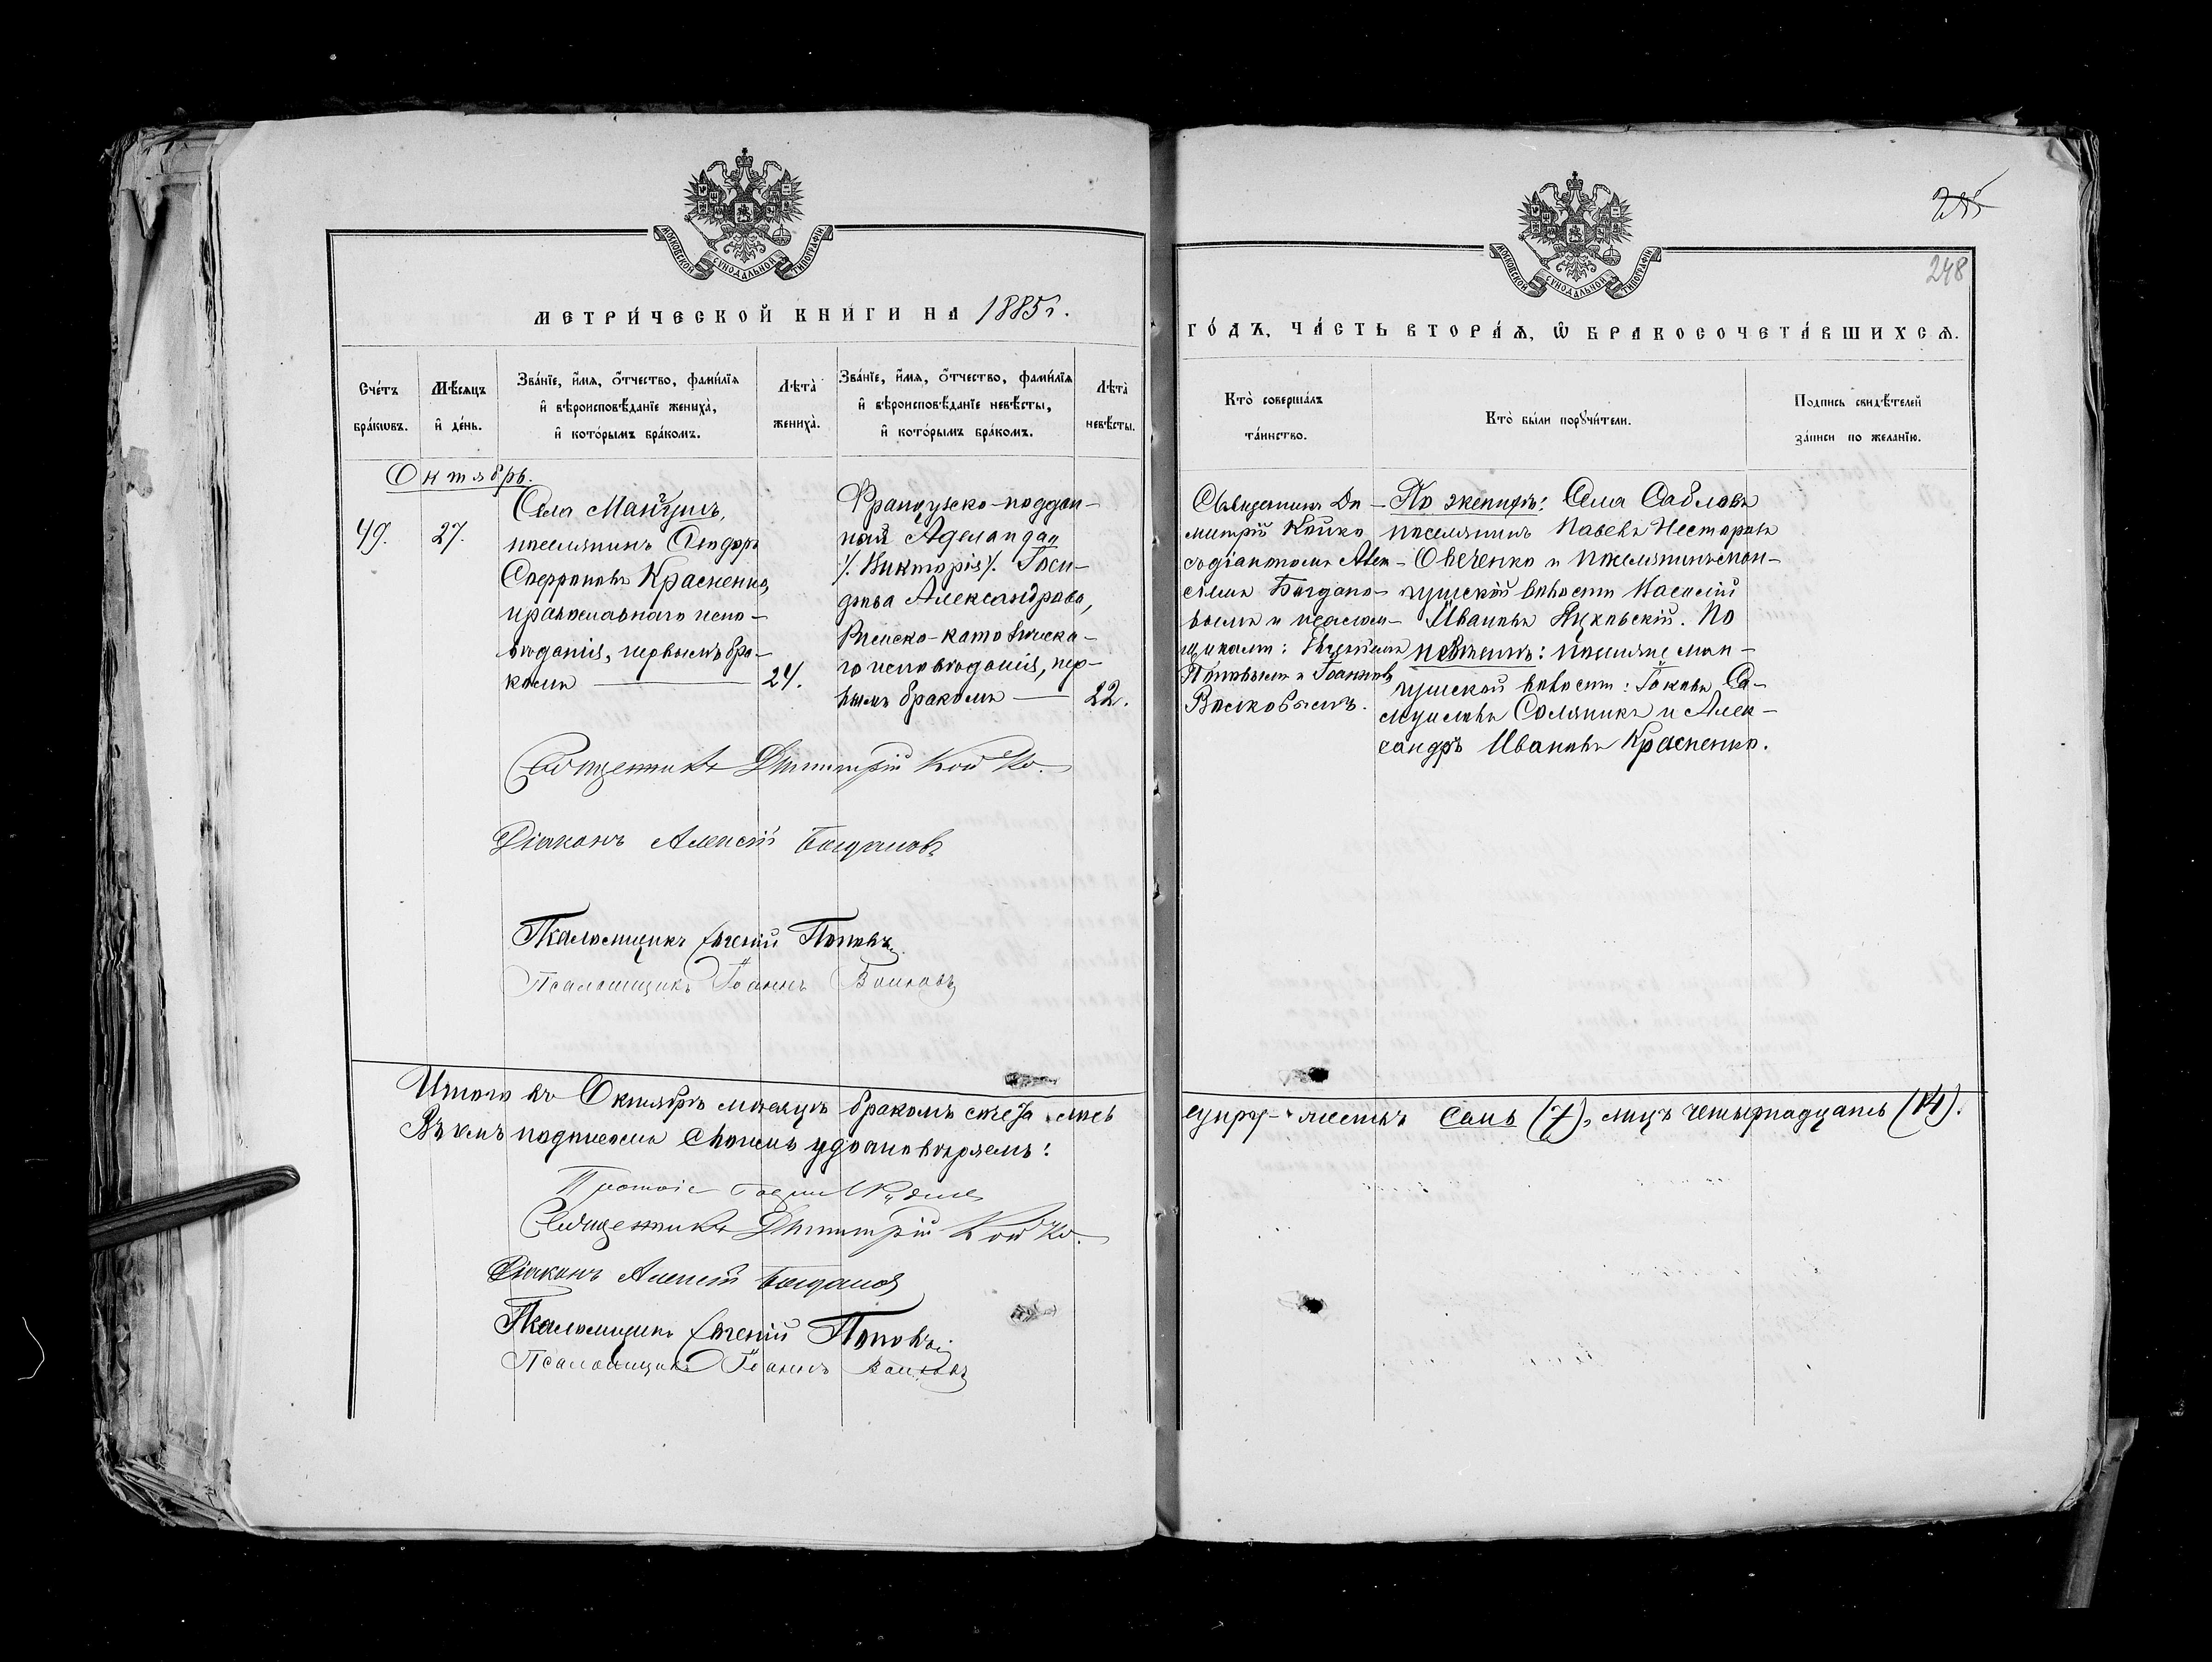 МОСКОВСКОЙ СѴНОДАЛЬНОЙ ТИПОГРАФІИ
МЕТРИ́ЧЕСКОЙ КНИ́ГИ НА 1885 г.
Сче́тъ бра́ковъ.
Мѣ́сяцъ и҆ де́нь.
Зва́нїе, и҆́мя, ѻ҆́тчество, фами́лїя и҆ вѣроисповѣ́данїе жениха̀, и҆ кото́рымъ бра́комъ.
Лѣта̀ жениха̀.
Зва́нїе, и҆́мя, ѻ҆́тчество, фами́лїя и҆ вѣроисповѣ́данїе невѣ́сты, и҆ кото́рымъ бра́комъ.
Лѣта̀ невѣ́сты.
Октябрь.
49.
27.
Села Мангушъ,
поселянинъ Ѳеодоръ
Софроновъ Красненко,
православнаго испо-
вѣданія, первымъ бра-
комъ
24.
Французско-поддан-
ная Аделаида
/. Викторія/. Іоси-
фова Александрова,
Римско-католическа-
го исповѣданія, пер-
вымъ бракомъ
22.
Священникъ Димитрій Койко.
Діаконъ Алексій Богдановъ
Псаломщикъ Евгеній Поповъ
Псаломщикъ Іоаннъ Волковъ
Итого въ Октябрѣ мѣсяцѣ бракомъ сочеталось
Въ чемъ подписомъ своимъ удостовѣряемъ:
Священникъ Димитрій Койко.
Діаконъ Алексій Богдановъ
Псаломщикъ Евгеній Поповъ
Псаломщикъ Іоаннъ Волковъ
248
МОСКОВСКОЙ СѴНОДАЛЬНОЙ ТИПОГРАФІИ
ГО́ДЪ, ЧА́СТЬ ВТОРА́Ѧ, Ѡ҆ БРАКОСОЧЕТА́ВШИХСѦ.
Кто̀ соверша́лъ та́инство.
Кто̀ бы́ли порꙋчи́тели.
Подпись свидѣ́телей за́писи по жела́нїю.
Священникъ Ди-
митрій Койко
съ діакономъ Алек-
сѣемъ Богдано-
вымъ и псалом-
щиками: Евгеніемъ
Поповымъ и Іоанномъ
Волковымъ.
По женихѣ: Села Сабловъ
поселянинъ Павелъ Несторовъ
Овеченко и поселянинъ ман-
гушской волости Василій
Ивановъ Яцковскій. По
невѣстѣ: поселяне ман-
гушской волости: Іаковъ Са-
муиловъ Соляникъ и Алек-
сандръ Ивановъ Красненко.
супружествъ семь (7), лицъ четырнадцать (14).